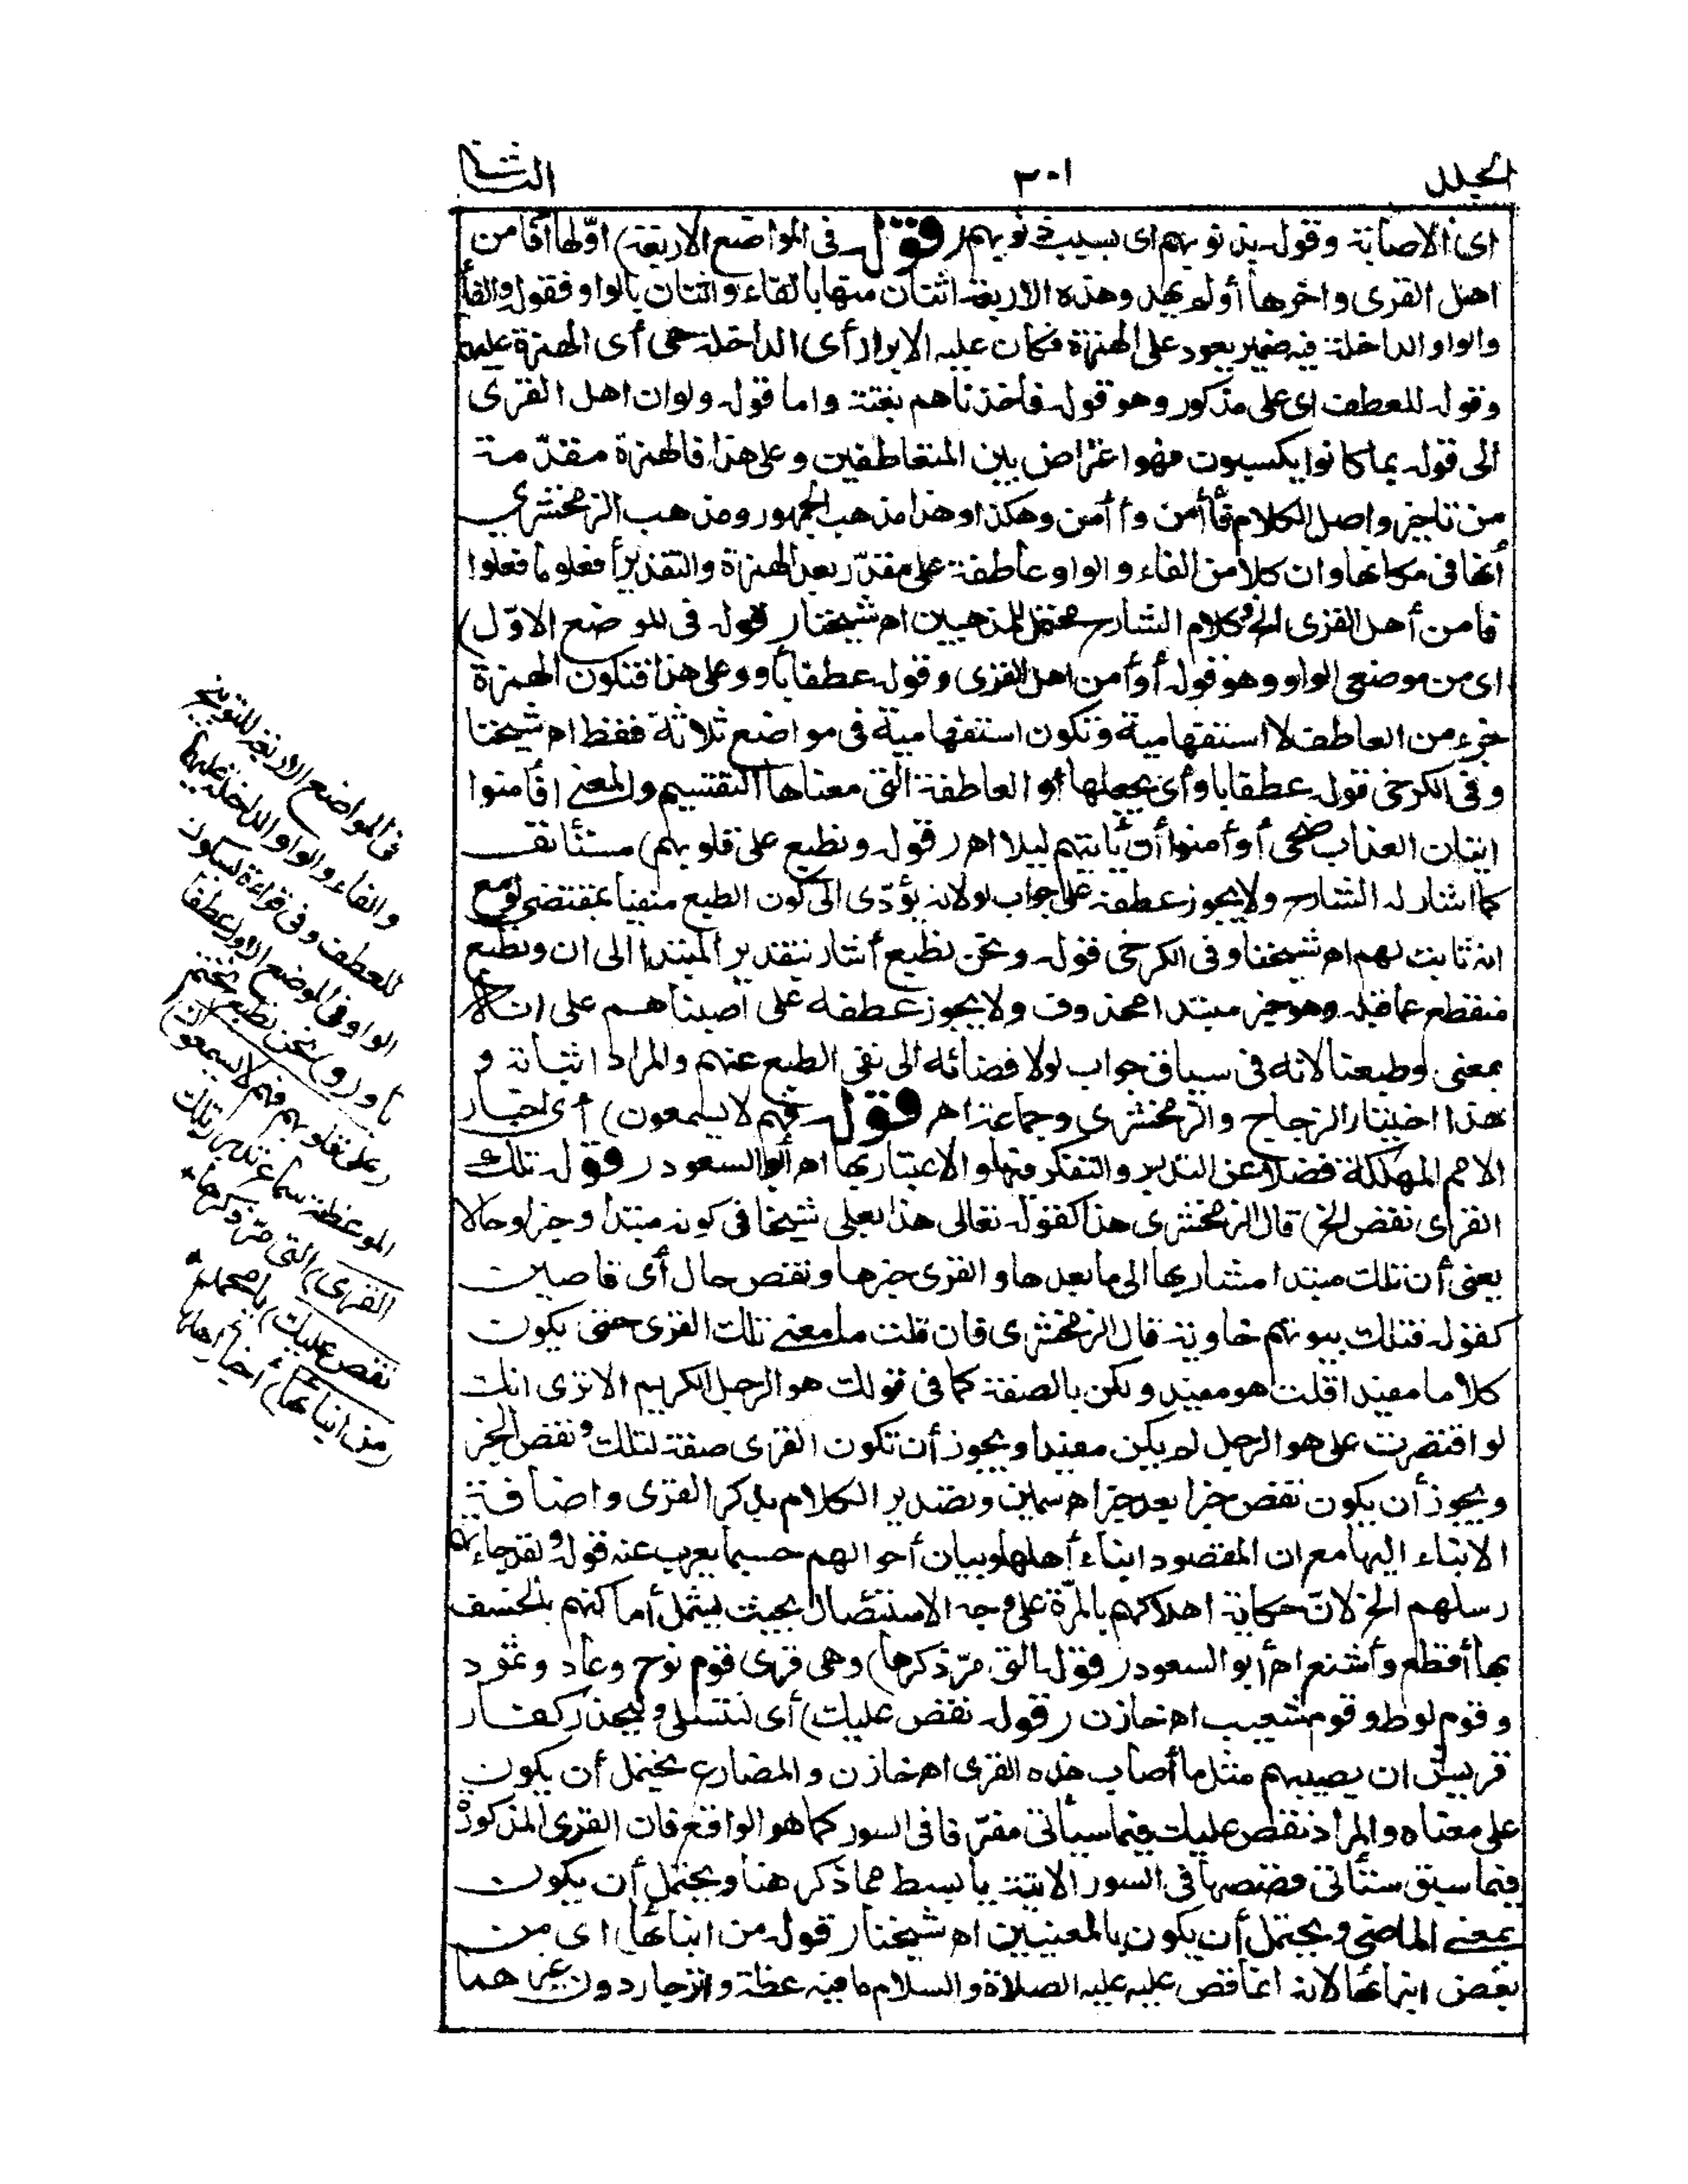 الجلد
٣٠١
الثانى
اى الاصابة وقوله بذنوبهم اى بسبب ذنوبهم (قوله فى المواضع الاربعة) اوّلها أفأمن
اهل القرى واخرها أولم يهد وهذه الاربعة اثنتان منها بالفاء واثنتان بالواو فقوله والفاء
والواو الداخلة فيه ضمير يعود على الهمزة فكان عليه الابراز أى الداخلة هى أى الهمزة عليهما
وقوله للعطف اى على مذكور وهو قوله فأخذناهم بغتة واما قوله ولو ان اهل القرى
الى قوله بما كانوا يكسبون فهو اعتراض بين المتعاطفين وعلى هذا فالهمزة مقدّمة
من تاخير واصل الكلام فأأمن وأأمن وهكذا وهذا مذهب الجمهور ومذهب الزمخشرى
أنها فى مكانها وان كلا من الفاء والواو عاطفة على مقدّر بعد الهمزة والتقدير أفعلوا ما فعلوا
فامن أهل القرى الخ وكلام الشارح محتمل للمذهبين اه شيخنا (قوله فى الموضع الاوّل)
اى من موضعى الواو وهو قوله أو أمن اهل القرى وقوله عطفا بأو وعلى هذا فتكون الهمزة
جزء من العاطف لا استفهامية وتكون استفهامية فى مواضع ثلاثة فقط اه شيخنا
وفى الكرخى قوله عطفا باو أى بجعلها أو العاطفة التى معناها التقسيم والمعنى أفأمنوا
اتيان العذاب ضحى أو أمنوا أن يأتيهم ليلا اه (قوله ونطبع على قلوبهم) مستأنف
كما اشار له الشارح ولا يجوز عطفه على جواب لو لانه يؤدّى الى كون الطبع منفيا بمقتضى لو مع
انه ثابت لهم اه شيخنا وفى الكرخى قوله ونحن نطبع أشار بتقدير المبتدا الى ان ونطبع
منقطع عما قبله وهو خبر مبتدا محذوف ولا يجوز عطفه على أصبناهم على انه
بمعنى وطبعنا لانه فى سياق جواب لو لافضائه الى نفى الطبع عنهم والمراد اثباته و
هذا اختيار الزجاج والزمخشرى وجماعة اه (قوله فهم لا يسمعون) أى اخبار
الامم المهلكة فضلا عن التدبر والتفكر فيها والاعتبار بها اه أبو السعود (قوله تلك
القرى نقص الخ) قال الزمخشرى هذا كقوله تعالى هذا بعلى شيخا فى كونه مبتدا وخبرا وحالا
يعنى أن تلك مبتدا مشار بها الى ما بعدها والقرى خبرها ونقص حال أى قاصين
كقوله فتلك بيوتهم خاوية قال الزمخشرى فان قلت ما معنى تلك القرى حتى يكون
كلاما مفيدا قلت هو مفيد ولكن بالصفة كما فى قولك هو الرجل الكريم الا ترى انك
لو اقتصرت على هو الرجل لم يكن مفيدا ويجوز أن تكون القرى صفة لتلك ونقص الخبر
ويجوز أن يكون نقص خبرا بعد خبر اه سمين وتصدير الكلام بذكر القرى واضافة
الانباء اليها مع ان المقصود انباء أهلها وبيان أحوالهم حسبما يعرب عنه قوله ولقد جاءتهم
رسلهم الخ لانّ حكاية اهلاكهم بالمرّة على وجه الاستئصال بحيث يشمل أماكنهم بالخسف
بها أفظع وأشنع اه أبو السعود (قوله التى مرّ ذكرها) وهى قرى قوم نوح وعاد وثمود
وقوم لوط وقوم شعيب اه خازن (قوله نقص عليك) أى لتتسلى وليحذر كفار
قريش ان يصيبهم مثل ما أصاب هذه القرى اه خازن والمضارع يحتمل أن يكون
على معناه والمراد نقص عليك فيما سيأتى مفرّقا فى السور كما هو الواقع فان القرى المذكورة
فيما سبق ستأتى قصصها فى السور الاتية بابسط مما ذكر هنا ويحتمل أن يكون
بمعنى الماضى ويحتمل أن يكون بالمعنيين اه شيخنا (قوله من انبائها) اى من
بعض انبائها لانه انما قص عليه عليه الصلاة والسلام ما فيه عظة وانزجار دون غيرهما
فى المواضع الاربعة للتوبيخ
والفاء والواو الداخلة عليها
للعطف وفى قراءة بسكون
الواو فى الموضع الاول عطفا
بأو (و) نحن نطبع نختم
(على قلوبهم فهم لا يسمعون)
الموعظة سماع تدبر (تلك
القرى) التى مرّ ذكرها*
نقص عليك) يا محمد*
(من انبائها) أخبار أهلها